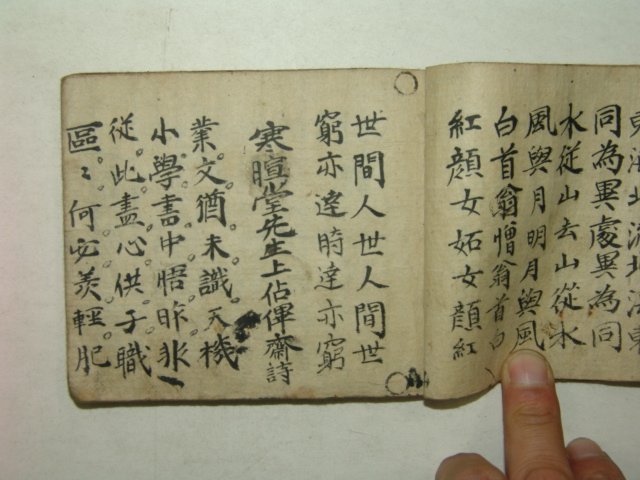 同為異處異為同
水從山去山從水
風與月明月與風
白首翁憎翁首白
紅顔女妬女顔紅
世間人世人間世
窮亦達時達亦窮
寒暄堂先生上佔俾齋詩
業文猶未識天機
小學書中悟昨非
從此盡心供子職
區〻何必羨輕肥